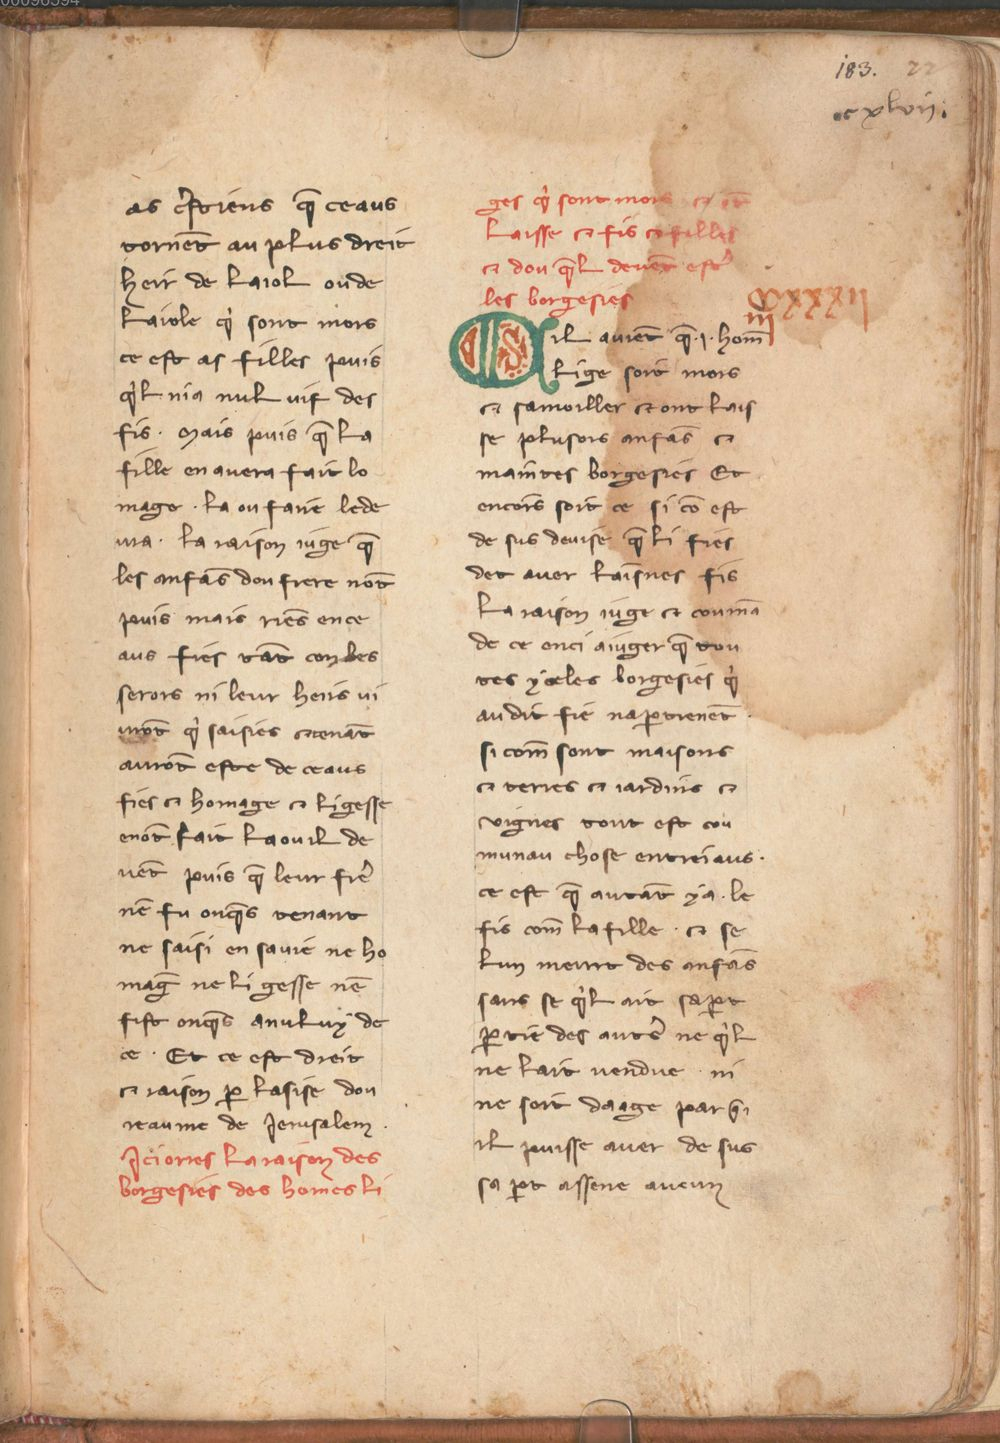 183. 22
.cxlvii.
as c̉stiens q̄ ceaus
tornēt au plus dreit
heir de laiol oude
laiole q̉ sont mors
ce est as filles puis
q̉l nia nul uif des
fis. Mais puis q̄ la
fille en auera fait lo
mage. la ou faire lede
ura. la raison iuge q̄
les anfās dou frere nōt
puis mais riēs en ce
aus fiés tāt con les
serors ni leur heirs ui
urōt q̉ saisies ⁊ tenāt
aurōt este de ceaus
fies ⁊ homage ⁊ ligesse
enōt fait la ou il de
uēt puis q̄ leur freᷣ
nē fu onq̄s tenant
ne saisi en sa uie ne ho
maḡ ne ligesse nē
fist onq̄s a nuluy de
ce. Et ce est dreit
⁊ raison ꝑ lasise dou
reaume de Jerusalem.
Jci orres la raison des
borgesies des homes li
ges q̉ sont mors ⁊ ōt
laisse ⁊ fis ⁊ filles
⁊ dou q̄l deuēt estᷣ
les borgesies
CXXXXII
III
Sil auiēt q̄ .i. hom̄
lige soit mors
⁊ sa moiller ⁊ ont lais
se plusors anfās ⁊
maintes borgesies Et
encors soit ce si cō est
de sus deuise q̄ li fiés
det auer laisnes fis
La raison iuge ⁊ coumā
de ce enci a iuger q̄ tou
tes yceles borgesies q̉
au dit fie napꝑtienēt.
si com̄ sont maisons
⁊ terres ⁊ iardins ⁊
vignes tout est cou
munau chose entreiaus.
ce est q̄ autāt y a. le
fis com̄ la fille. ⁊ se
lun meurt des anfās
sans se q̉l ait sa ꝑt
ꝑtie des autᷣs ne q̉l
ne lait vendue ni
ne soit daage par q̉
il puisse auer de sus
sa ꝑt assene aucun